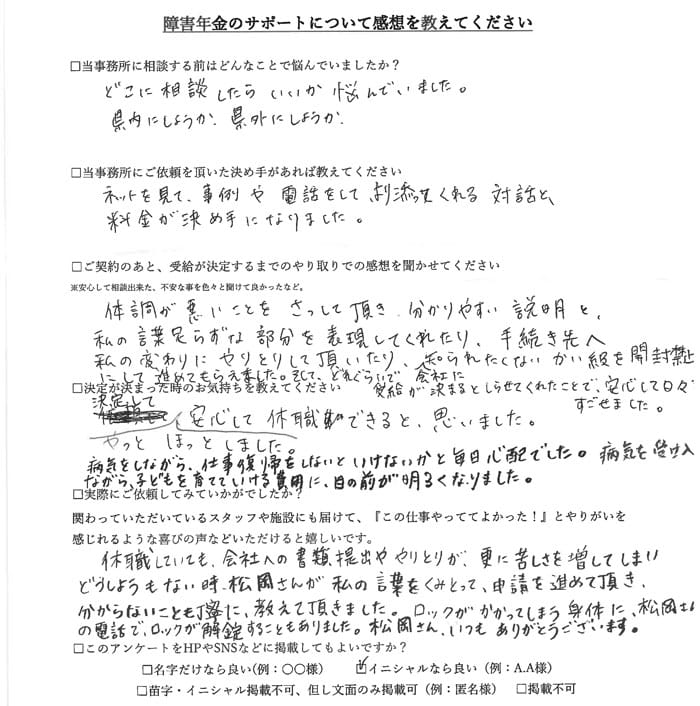 障害年金のサポートについて感想を教えてください
□当事務所に相談する前はどんなことで悩んでいましたか?
どこに相談したらいいか悩んでいました。
県内にしようか、県外にしようか、
□当事務所にご依頼を頂いた決め手があれば教えてください
ネットを見て、事例や電話をして、より添ってくれる対話と、
料金が決め手になりました。
□ご契約のあと、受給が決定するまでのやり取りでの感想を聞かせてください
※安心して相談出来た、不安な事を色々と聞けて良かったなど。
体調が悪いことをさっして頂き、分かりやすい説明と、
私の言葉足らずな部分を表現してくれたり、手続き先へ
私の変わりにやりとりして頂いたり、知られたくないかい級を開封禁止
にして進めてもらえました。そして、どれぐらいで、会社に
受給が決まるとしらせてくれたことで、安心して日々
すごせました。
□決定が決まった時のお気持ちを教えてください
決定して
、安心して休職できると、思いました。
やっとほっとしました。
病気をしながら、仕事復帰をしないといけないかと毎日心配でした。病気を受け入れ
ながら、子どもを育てていける費用に、目の前が明るくなりました。
□実際にご依頼してみていかがでしたか?
関わっていただいているスタッフや施設にも届けて、『この仕事やっててよかった!』とやりがいを
感じれるような喜びの声などいただけると嬉しいです。
休職していても、会社への書類提出ややりとりが、更に苦しさを増してしまい
どうしようもない時、松岡さんが私の言葉をくみとって、申請を進めて頂き、
分からないことも丁寧に、教えて頂きました。ロックがかかってしまう身体に、松岡さん
の電話で、ロックが解錠することもありました。松岡さん、いつもありがとうございます。
□このアンケートをHPやSNSなどに掲載してもよいですか?
□名字だけなら良い(例:〇〇様) ☑イニシャルなら良い(例:A.A様)
□苗字・イニシャル掲載不可、但し文面のみ掲載可(例:匿名様) □掲載不可